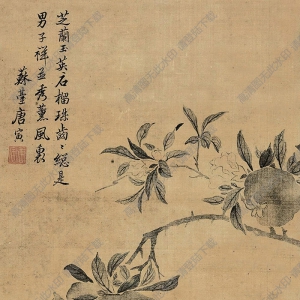 芝蘭玉英石榴珠齒〻總是
男子祥並秀薰風裏
蘇臺唐寅